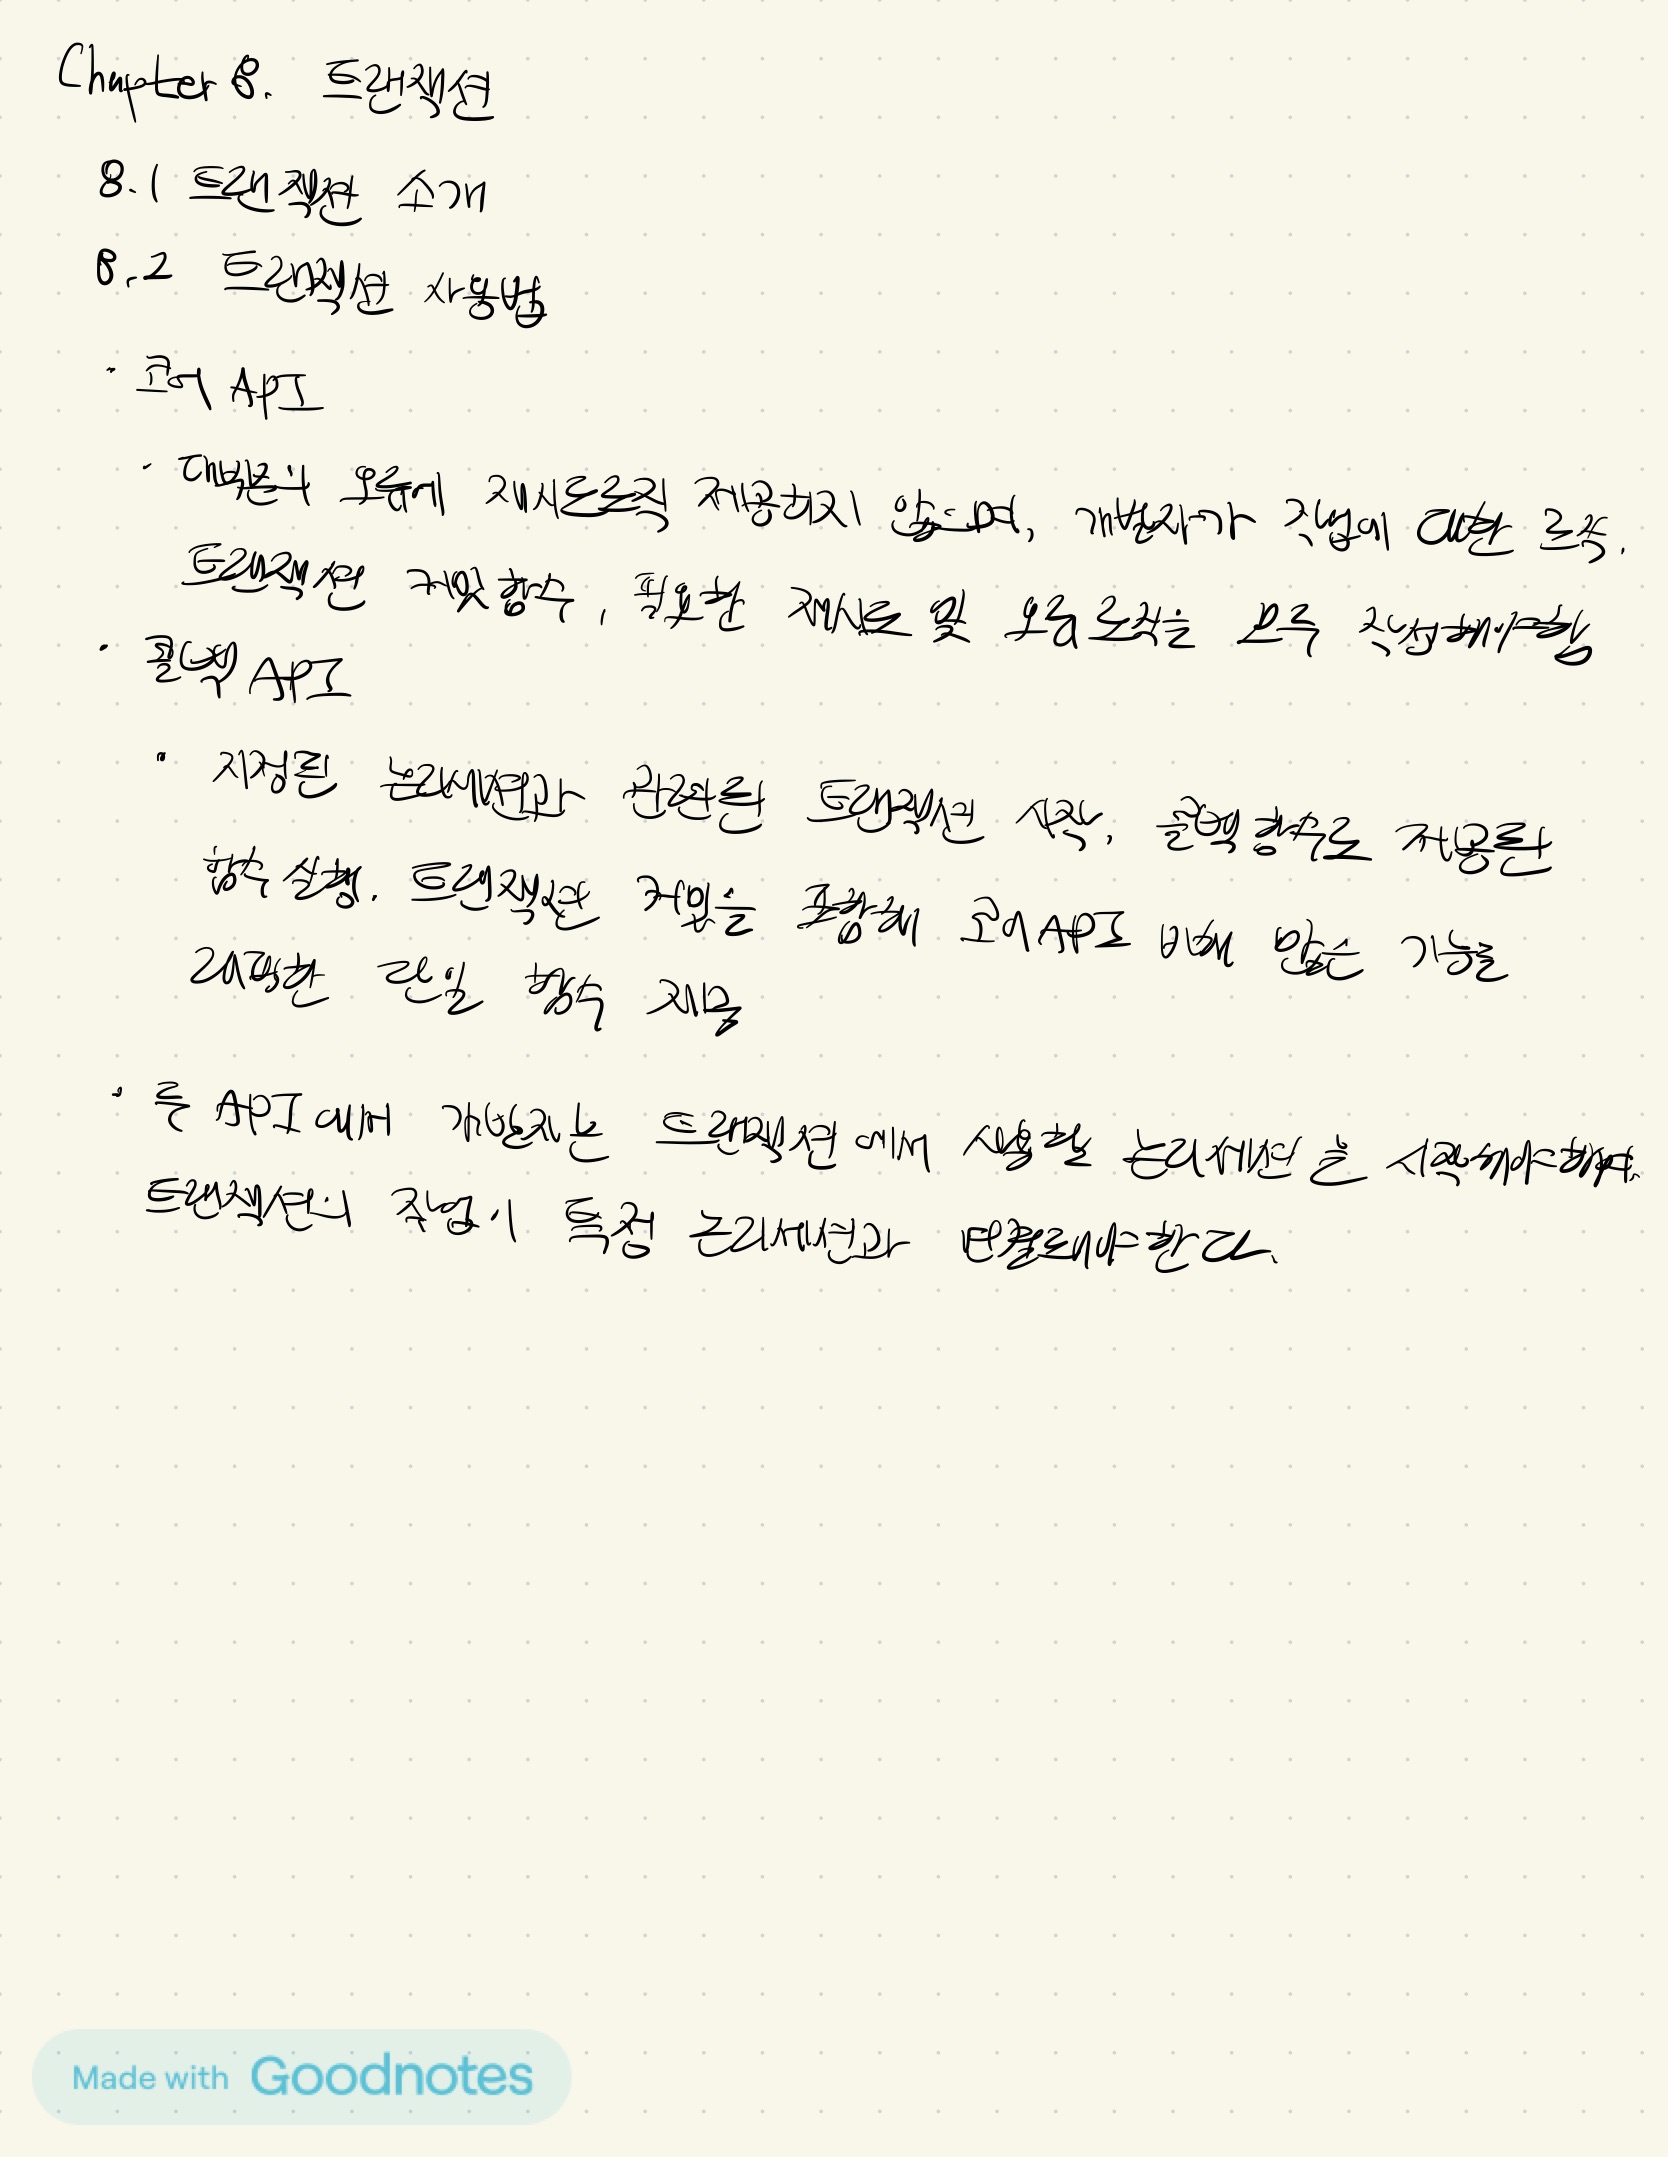 Chapter 8. 트랜잭션
8.1 트랜잭션 소개
8.2 트랜잭션 사용법
· 코어 API
· 대부분의 오류에 재시도로직 제공하지 않으며, 개발자가 작업에 대한 로직,
트랜잭션 커밋함수, 필요한 재시도 및 오류 로직을 모두 작성해야함
· 콜백 API
· 지정된 논리세션과 관련된 트랜잭션 시작, 콜백함수로 제공된
함수 실행. 트랜잭션 커밋을 포함해 코어API 비해 많은 기능을
래핑한 단일 함수 제공
· 두 API에서 개발자는 트랜잭션에서 사용할 논리세션을 시작해야하며,
트랜잭션의 작업이 특정 논리세션과 연결돼야한다.
Made with Goodnotes